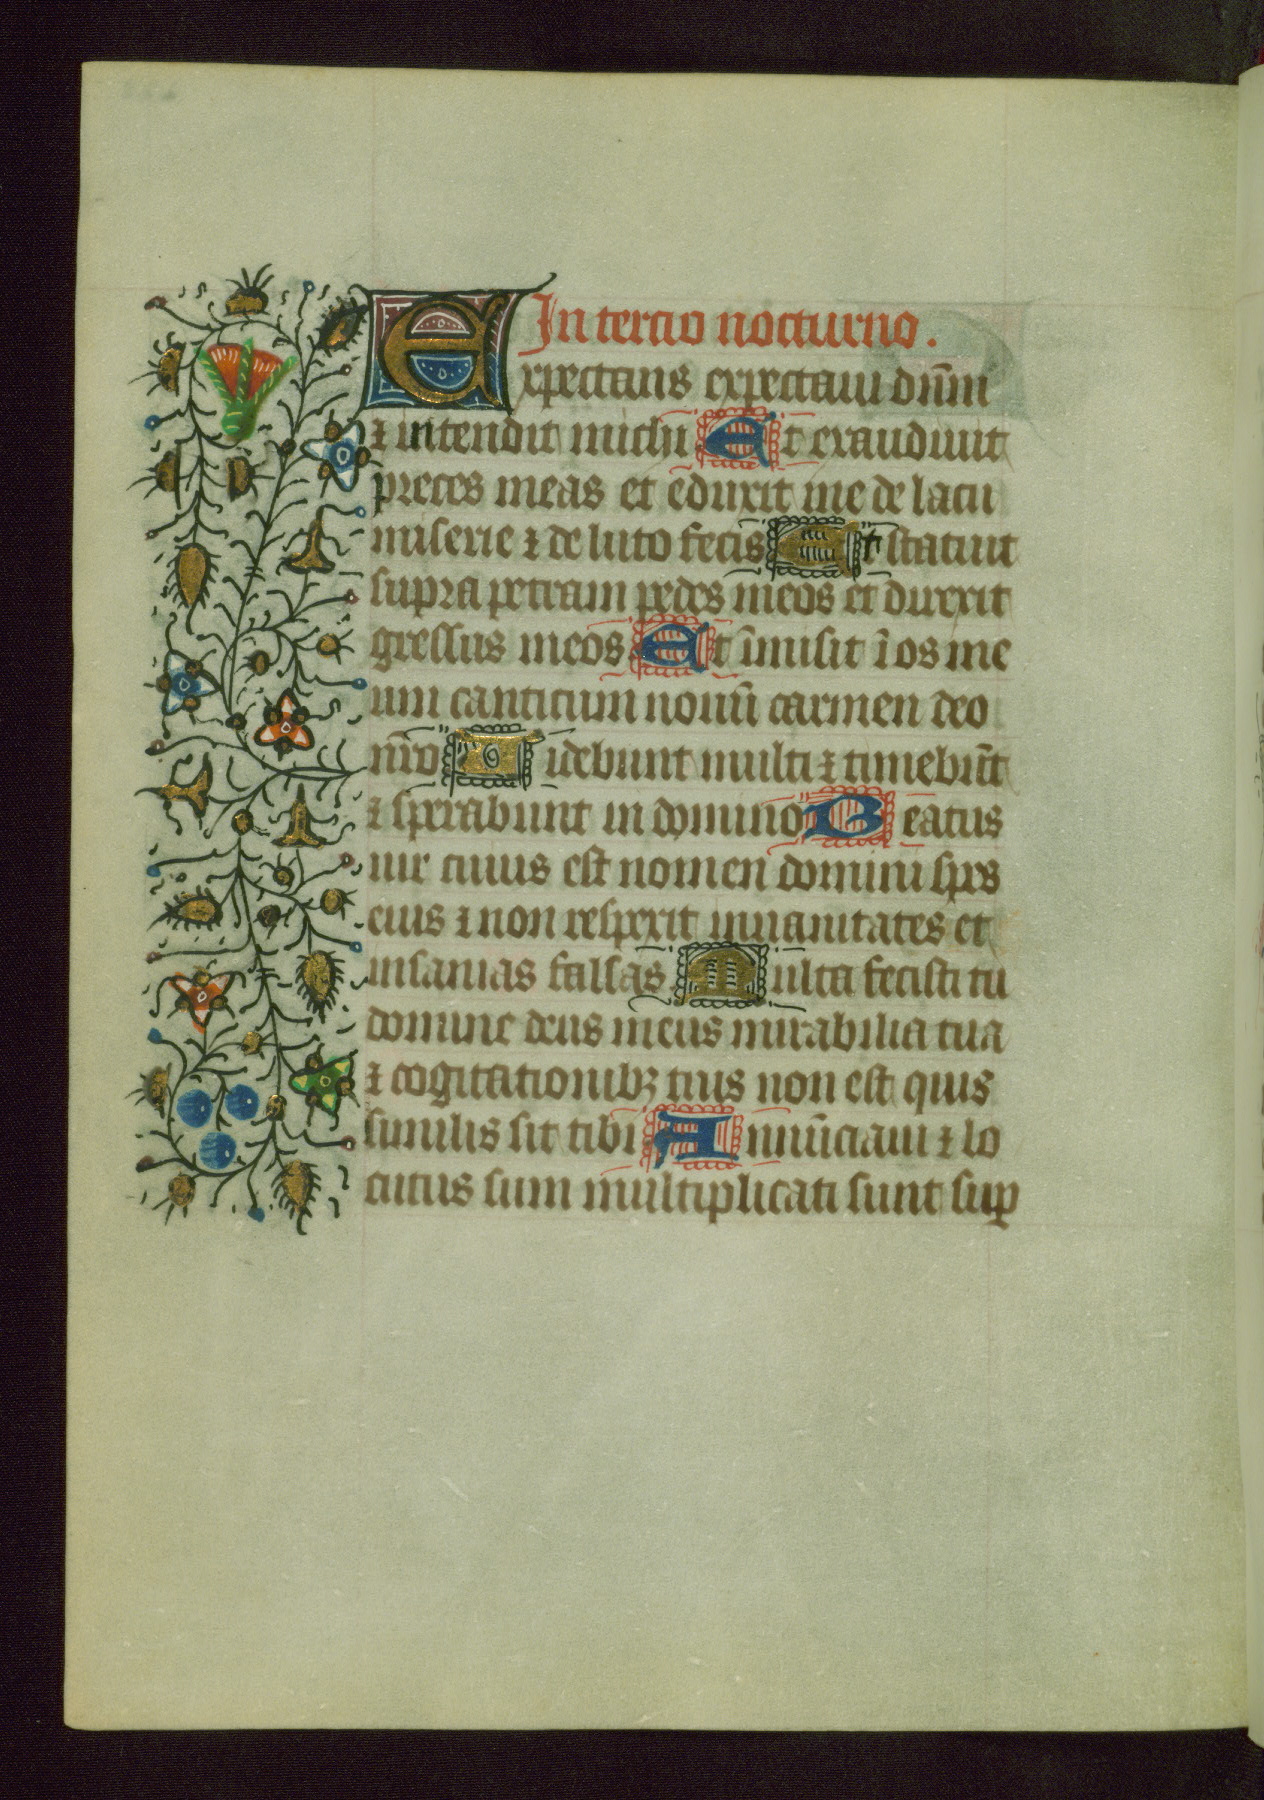 In tercio nocturno.
Expectans expectaui dn̄m
⁊ intendit michi Et exaudiuit
preces meas et eduxit me de lacu
miserie ⁊ de luto fecis Et statuit
supra petram pedes meos et direxit
gressus meos Et īmisit ī os me
um canticum nouū carmen deo
nr̄o Uidebunt multi ⁊ timebūt
⁊ sperabunt in domino Beatus
uir cuius est nomen domini spes
eius ⁊ non respexit inuanitates et
insanias falsas Multa fecisti tu
domine deus meus mirabilia tua
⁊ cogitationibꝫ tuis non est quis
similis sit tibi Annūciaui ⁊ lo
cutus sum multiplicati sunt suꝑ